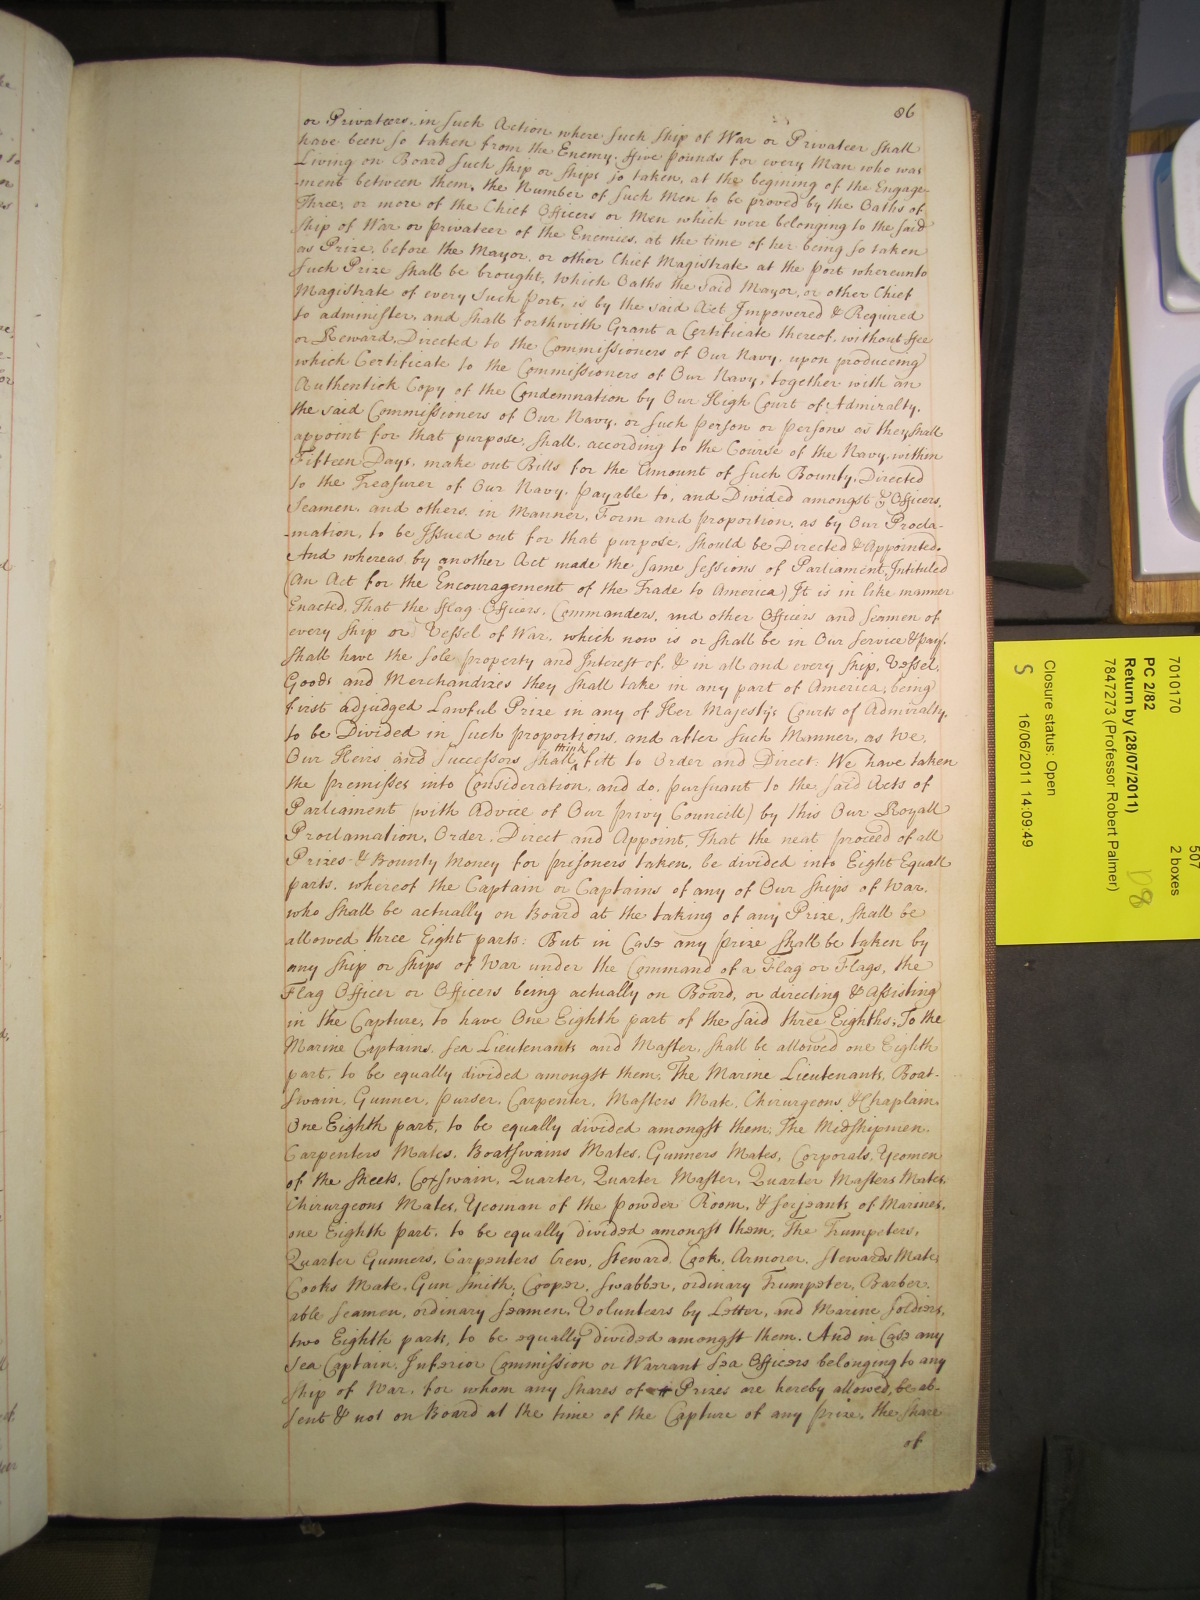 86
or Privateers, in such Action where such Ship of War or Privateer shall
have been so taken from the Enemy, ffive pounds for every Man who was
Living on Board such Ship or Ships so taken, at the begining of the Engage-
-ment between them, the Number of such Men to be proved by the Oaths of
Three, or more of the Chief Officers or Men which were belonging to the said
Ship of War or privateer of the Enemies, at the time of her being so taken
as Prize, before the Mayor, or other Chief Magistrate at the port whereunto
such Prize shall be brought, which Oaths the said Mayor, or other Chief
Magistrate of every such port, is by the said Act Impowered & Required
to administer, and shall forthwith Grant a Certificate thereof, without ffee
or Reward, Directed to the Commissioners of Our Navy, upon produceing
which Certificate to the Commissioners of Our Navy, together with an
Authentick Copy of the Condemnation by Our High Court of Admiralty,
the said Commissioners of Our Navy, or such person or persons as they shall
appoint for that purpose, shall, according to the Course of the Navy, within
Fifteen Days, make out Bills for the Amount of such Bounty, Directed
to the Treasurer of Our Navy, payable to, and Divided amongst ye Officers,
Seamen, and others, in Manner, Form and proportion, as by Our Procla-
-mation, to be Issued out for that purpose, should be Directed & Appointed.
And whereas by another Act made the same Sessions of Parliament, Intituled
(An Act for the Encouragement of the Trade to America) It is in like manner
Enacted, That the fflag Officers, Commanders, and other Officers and Seamen of
every Ship or Vessel of War, which now is or shall be in Our Service & pay,
shall have the sole property and Interest of, & in all and every Ship, Vessel,
Goods and Merchandizes they shall take in any part of America, being
first adjudged Lawful Prize in any of Her Majestys Courts of Admiralty,
to be Divided in such proportions, and after such Manner, as We,
Our Heirs and Successors shall think fitt to Order and Direct: We have taken
the premisses into Consideration, and do, pursuant to the said Acts of
Parliament (with Advice of Our privy Councill) by this Our Royall
Proclamation, Order, Direct and Appoint, That the neat proceed of all
Prizes & Bounty Money for prisoners taken, be divided into Eight Equall
parts, whereof the Captain or Captains of any of Our Ships of War,
who shall be actually on Board at the taking of any Prize, shall be
allowed three Eight parts: But in Case any prize shall be taken by
any Ship or Ships of War under the Command of a Flag or Flags, the
Flag Officer or Officers being actually on Board, or directing & Assisting
in the Capture, to have One Eighth part of the said three Eighths; To the
Marine Captains, Sea Lieutenants and Master, shall be allowed one Eighth
part, to be equally divided amongst them; The Marine Lieutenants, Boat-
swain, Gunner, purser, Carpenter, Masters Mate, Chirurgeons, & Chaplain,
One Eighth part, to be equally divided amongst them; The Midshipmen,
Carpenters Mates, Boatswains Mates, Gunners Mates, Corporals, Yeomen
of the Sheets, Coxswain, Quarter, Quarter Master, Quarter Masters Mates,
Chirurgeons Mates, Yeoman of the powder Room, & Serjeants of Marines,
one Eighth part, to be equally divided amongst them; The Trumpeters,
Quarter Gunners, Carpenters Crew, Steward, Cook, Armorer, Stewards Mate,
Cooks Mate, Gun Smith, Cooper, Swabber, ordinary Trumpeter, Barber,
able Seamen, ordinary Seamen, Volunteers by Letter, and Marine Soldiers,
two Eighth parts, to be equally divided amongst them. And in Case any
Sea Captain, Inferior Commission or Warrant Sea Officers belonging to any
Ship of War, for whom any shares of Prizes are hereby allowed, be ab-
sent & not on Board at the time of the Capture of any prize, the share
of
507
2 boxes
7010170
PC 2/82
Return by (28/07/2011)
7847273 (Professor Robert Palmer)
D8
Closure status: Open
S 16/06/2011 14:09:49